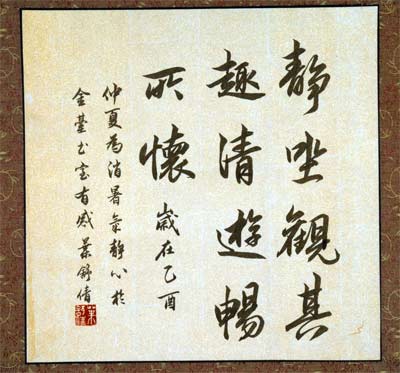 靜坐觀其
趣清遊暢
所懷 歲在乙酉
仲夏為消暑氣靜心於
金臺书室有感葉舒倩